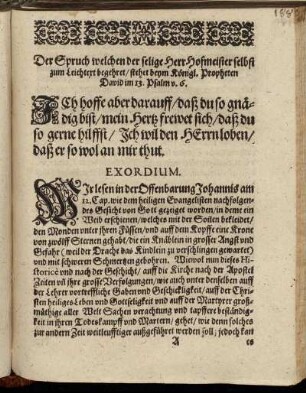 Der Spruch welchen der selige Herr Hofmeister selbst
zum Leichtext begehret/ stehet beym Königl. Propheten
David im 13. Psalm v. 6.
ICh hoffe aber darauff/ daß du so gnä-
dig bist/ mein Hertz frewet sich/ daß du
so gerne hilffst/ Ich wil den HErrn loben/
daß er so wol an mir thut.
EXORDIUM.
WIr lesen in der Offenbarung Johannis am
12. Cap. wie dem heiligen Evangelisten nachfolgen-
des Gesicht von Gott gezeiget worden/ in deme ein
Weib erschienen/ welches mit der Soñen bekleidet/
den Monden unter ihren Füssen/ und auff dem Kopffe eine Krone
von zwölff Sternen gehabt/ die ein Knäblein in grosser Angst und
Gefahr (weil der Drache das Kindlein zu verschlingen gewartet)
und mit schweren Schmertzen gebohren. Wiewol nun dieses Hi-
storicè und nach der Geschicht/ auff die Kirche nach der Apostel
Zeiten uñ ihre grosse Verfolgungen/ wie auch unter denselben auff
der Lehrer vortreffliche Gaben und Geschickligkeit/ auff der Chri-
sten heiliges Leben und Gottseligkeit und auff der Martyrer groß-
müthige aller Welt Sachen verachtung und tapffere beständig-
keit in ihren Todeskampff und Martern/ gehet/ wie denn solches
zur andern Zeit weitleufftiger außgeführet werden soll; jedoch kan
A es